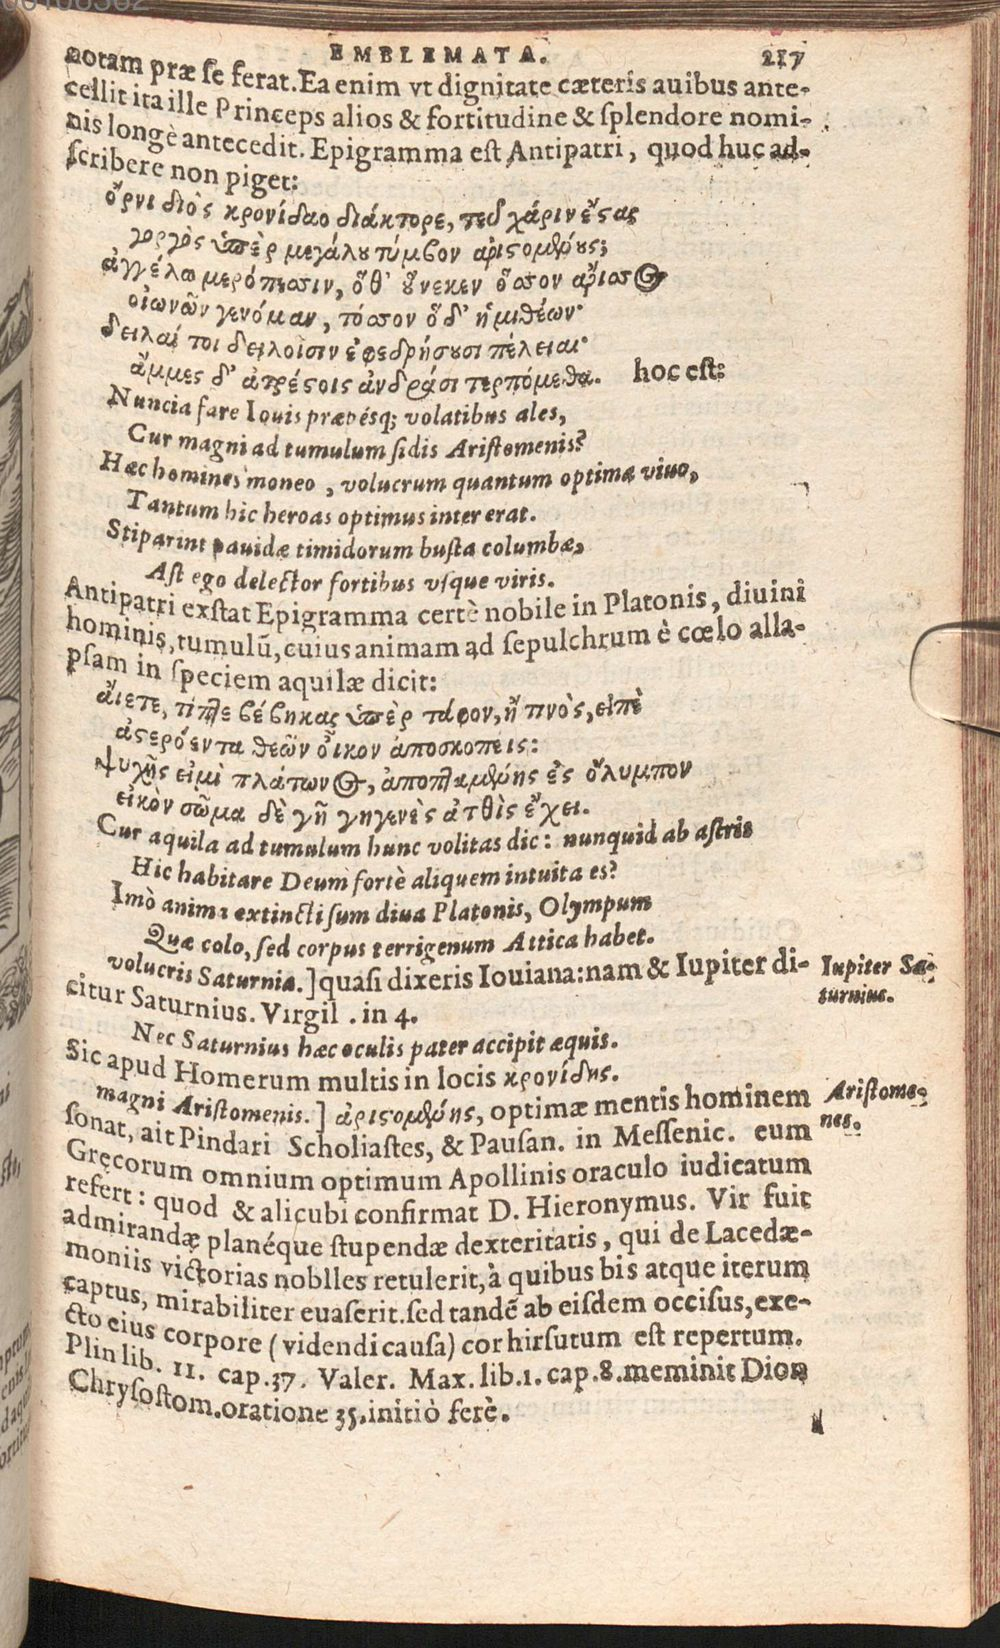 EMBLEMATA. 217
notam præ se ferat. Ea enim vt dignitate cæteris auibus ante-
cellit ita ille Princeps alios & fortitudine & splendore nomi-
nis longè antecedit. Epigramma est Antipatri, quod huc ad-
scribere non piget:
ὄρνι διὸς κρονίδαο διάκτορε, τεῦ χάριν ἔστας
γοργὸς ὑπὲρ μεγάλου τύμβον ἀριστομένους;
ἀγγέλλω μερόπεσσιν, ὅθ' οὕνεκεν ὅσσον ἄριστος
οἰωνῶν γενόμαν, τόσσον ὅδ' ἡμιθέων·
δειλαί τοι δειλοῖσιν ἐφεδρήσουσι πέλειαι·
ἄμμες δ' ἀτρέστοις ἀνδράσι τερπόμεθα. hoc est:
Nuncia fare Iouis præpésq; volatibus ales,
Cur magni ad tumulum sidis Aristomenis?
Hæc homines moneo, volucrum quantum optima viuo,
Tantum hic heroas optimus inter erat.
Stiparint pauidæ timidorum busta columbæ,
Ast ego delector fortibus vsque viris.
Antipatri exstat Epigramma certè nobile in Platonis, diuini
hominis, tumulū, cuius animam ad sepulchrum è cœlo alla-
psam in speciem aquilæ dicit:
αἴετε, τίπτε βέβηκας ὑπὲρ τάφον, ἢ πνὸς, εἰπὲ
ἀστερόεντα θεῶν οἶκον ἀποσκοπεις:
ψυχῆς εἰμὶ πλάτωνος, ἀποπταμένης ἐς ὄλυμπον
εἰκὸν σῶμα δὲ γῆ γηγενὲς ἀτθὶς ἔχει.
Cur aquila ad tumulum hunc volitas dic: nunquid ab astris
Hic habitare Deum fortè aliquem intuita es?
Imò anima extincti sum diua Platonis, Olympum
Quæ colo, sed corpus terrigenum Attica habet.
volucris Saturnia.] quasi dixeris Iouiana: nam & Iupiter di-
Iupiter Sa-
turnius.
citur Saturnius. Virgil. in 4.
Nec Saturnius hæc oculis pater accipit æquis.
Sic apud Homerum multis in locis κρονίδης.
magni Aristomenis.] ἀριστομένης, optimæ mentis hominem
Aristome-
nes.
sonat, ait Pindari Scholiastes, & Pausan. in Messenic. eum
Gręcorum omnium optimum Apollinis oraculo iudicatum
refert: quod & alicubi confirmat D. Hieronymus. Vir fuit
admirandæ planéque stupendæ dexteritatis, qui de Lacedæ-
moniis victorias noblles retulerit, à quibus bis atque iterum
captus, mirabiliter euaserit. sed tandē ab eisdem occisus, exe-
cto eius corpore (videndi causa) cor hirsutum est repertum.
Plin lib. 11. cap. 37. Valer. Max. lib. 1. cap. 8. meminit Dion
Chrysostom. oratione 35. initiò ferè.